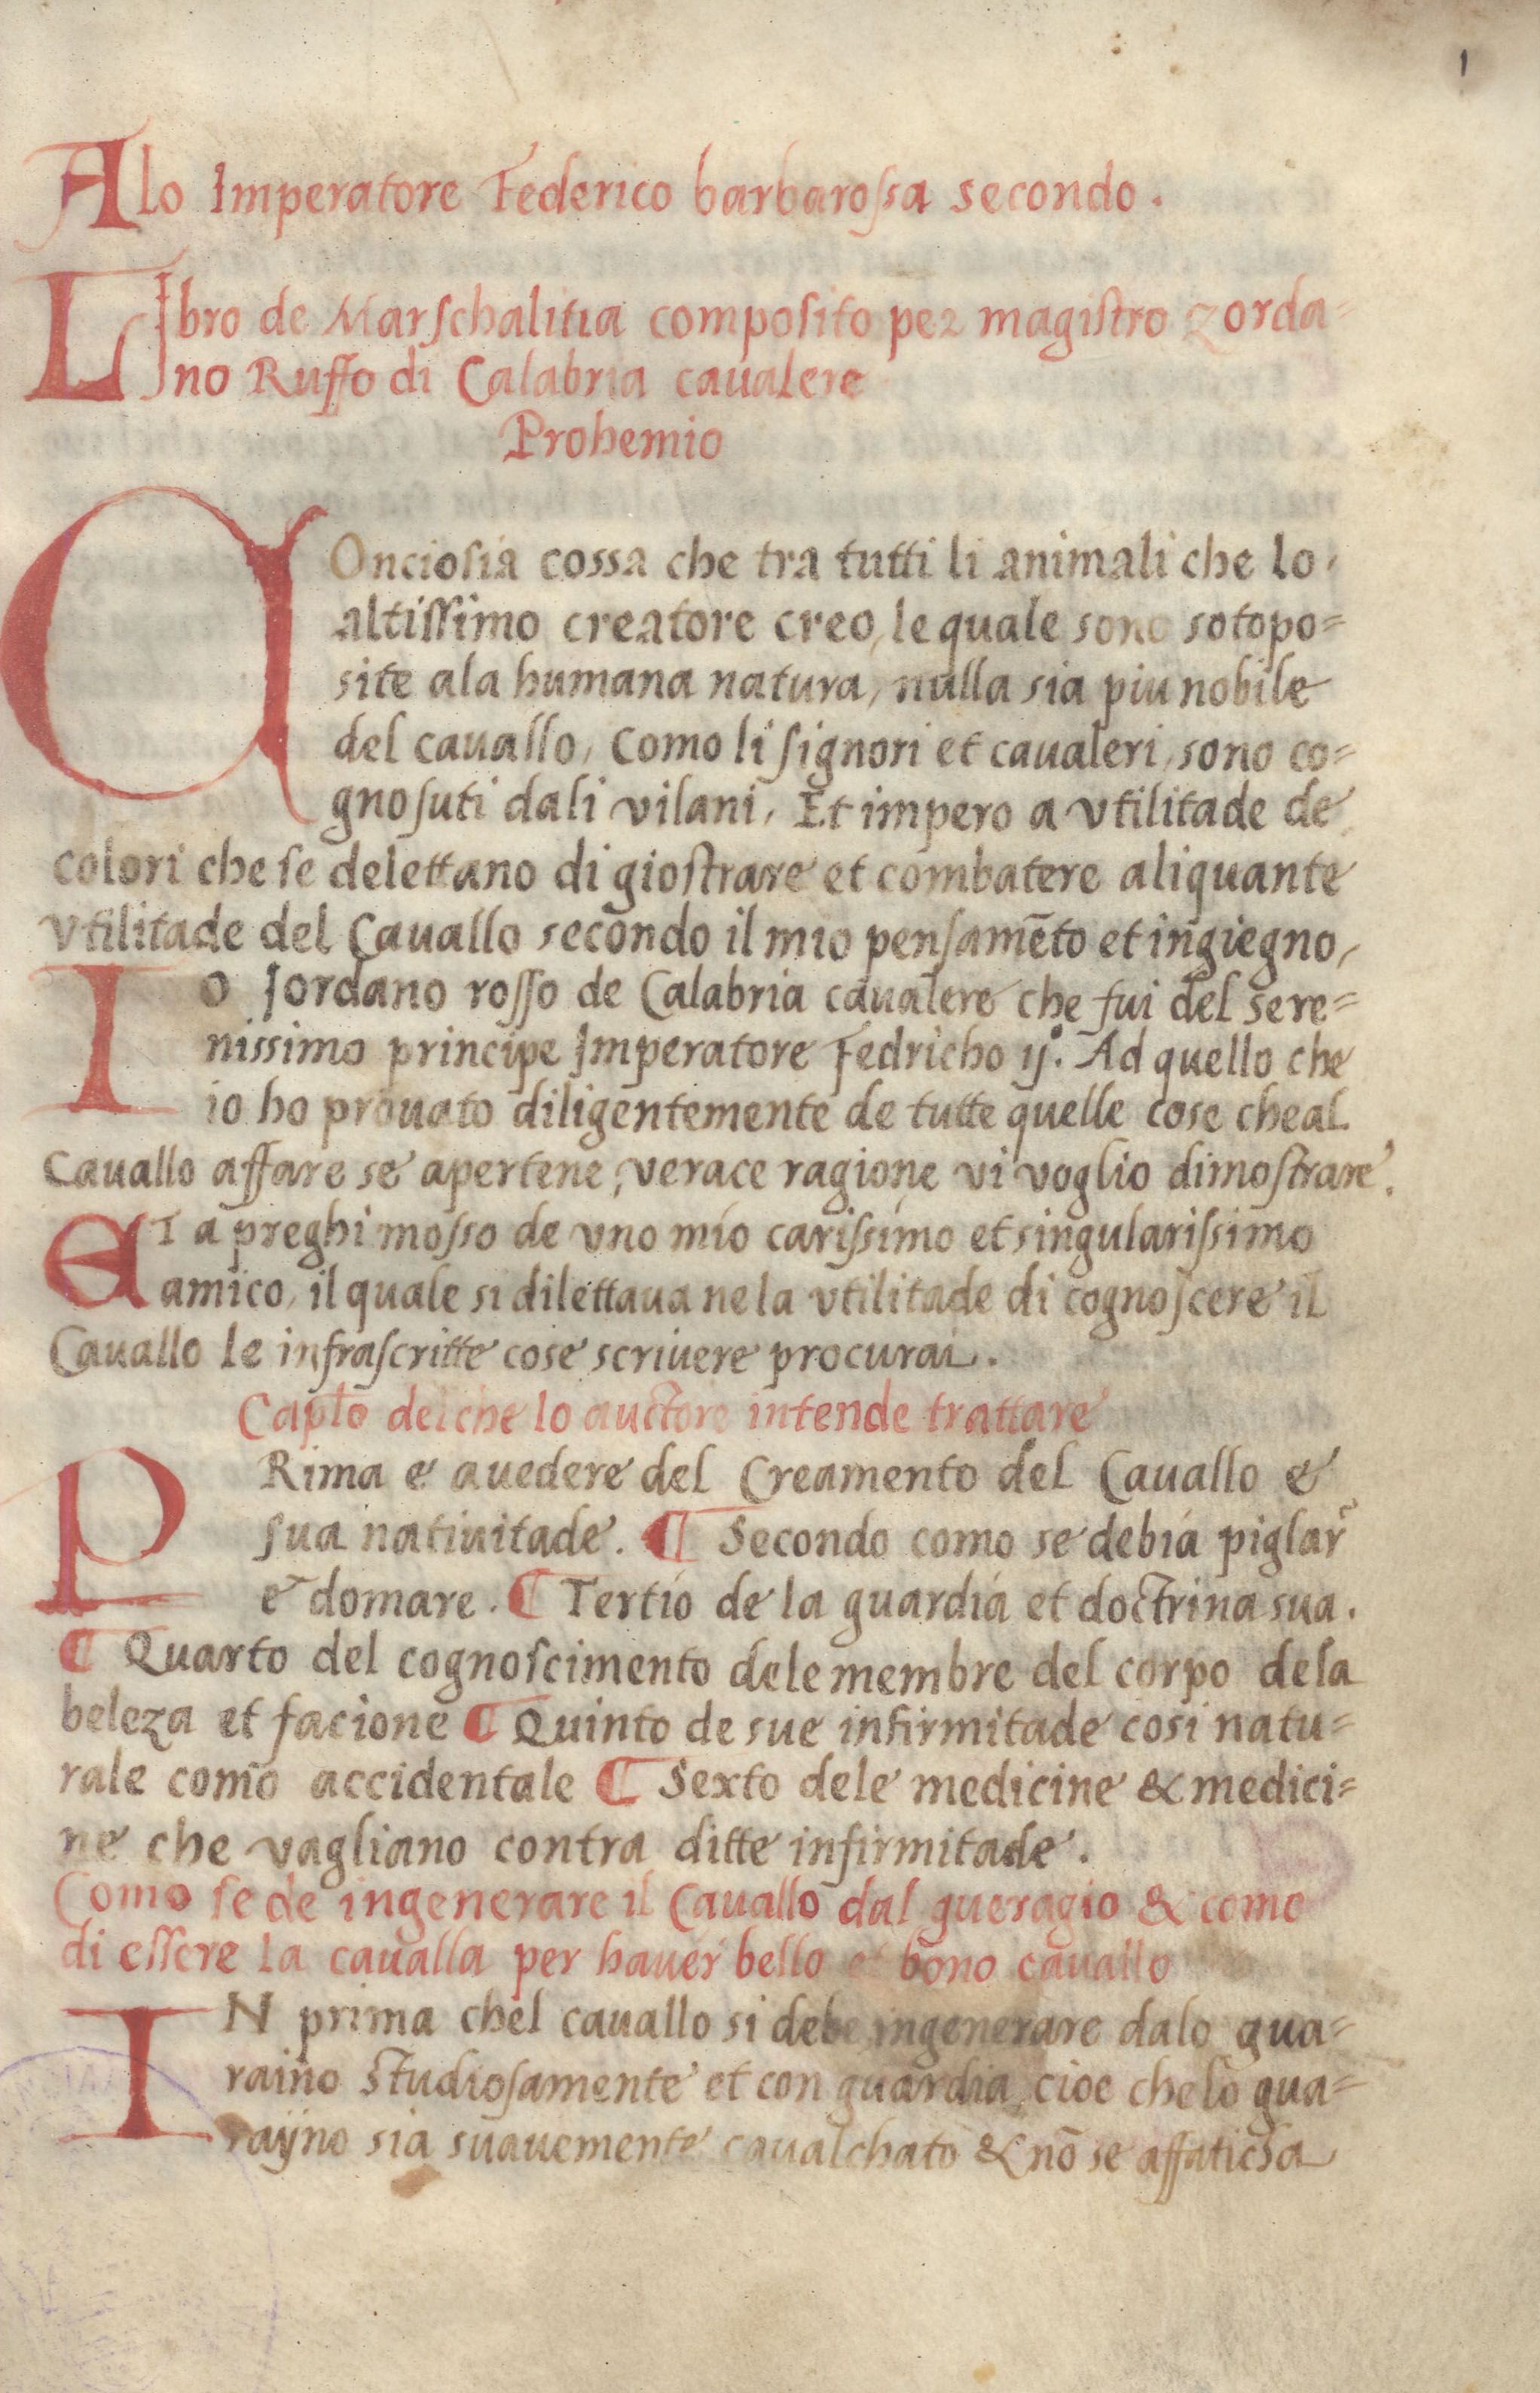 1
Alo Imperatore Federico barbarossa secondo.
LIbro de Marschalitia composito per magistro zorda=
no Ruffo di Calabria caualere
Prohemio
COnciosia cossa che tra tutti li animali che lo
altissimo creatore creo, le quale sono sotopo=
site ala humana natura, nulla sia piu nobile
del cauallo, Como li signori et caualeri, sono co=
gnosuti dali vilani, Et impero a vtilitade de
colori che se delettano di giostrare et combatere aliquante
vtilitade del Cauallo secondo il mio pensamēto et ingiegno,
IO Jordano rosso de Calabria caualere che fui del sere=
nissimo principe Imperatore Fedricho ij°. Ad quello che
io ho prouato diligentemente de tutte quelle cose cheal
Cauallo affare se apertene, verace ragione vi voglio dimostrare.
ET a preghi mosso de vno mio carissimo et singularissimo
amico, il quale si dilettaua ne la vtilitade di cognoscere il
Cauallo le infrascritte cose scriuere procurai.
Capto delche lo auctore intende trattare
PRima e auedere del Creamento del Cauallo e
sua natiuitade. ¶ Secondo como se debia piglar̃
e domare. ¶ Tertio de la guardia et doctrina sua.
¶ Quarto del cognoscimento dele membre del corpo dela
beleza et facione ¶ Quinto de sue infirmitade cosi natu=
rale como accidentale ¶ Sexto dele medicine & medici=
ne che vagliano contra ditte infirmitade.
Como se de ingenerare il Cauallo dal gueragio & como
di essere la caualla per hauer bello et bono cauallo
IN prima chel cauallo si debe ingenerare dalo gua=
raino studiosamente et con guardia cioe chelo gua=
raijno sia suauemente caualchato & nō se affaticha